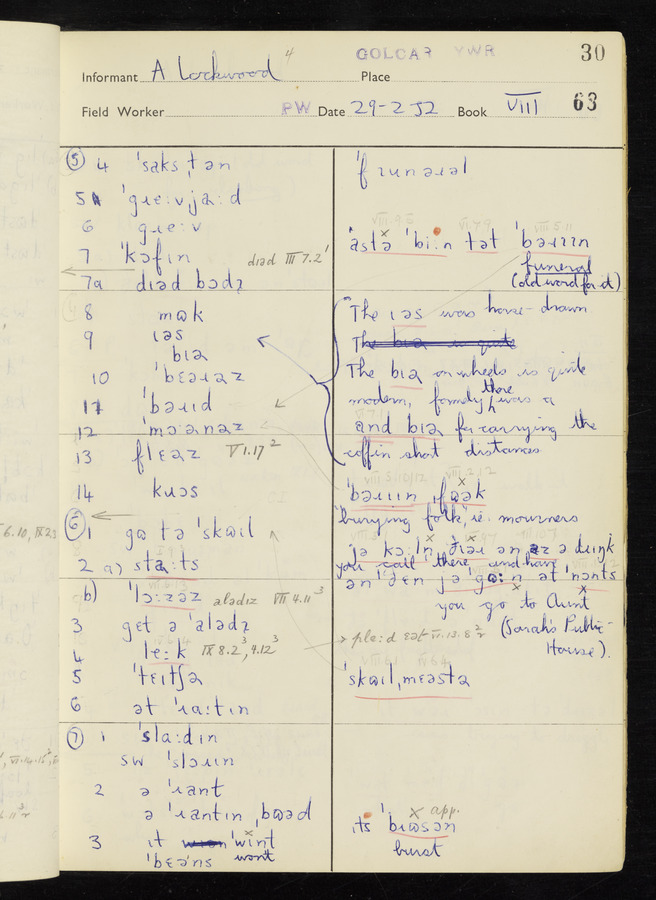 GOLCAR YWR 30
Informant A Lockwood 4 Place
Field Worker PW Date 29-2 52 Book VIII 63
⑤ 4 'saks,tən
5 'gɹɛːv,jaːd
6 gɹɛːv
7 'kɔfɪn dɪəd III 7.2
7a dɪəd bɔdɪ
8 mɷk
9 ɪəs
bɪə
10 'bɛəɹəz
11 'bəɹɪd
12 'mɔːənəz
13 flɛəz VI.17²
14 kɹɔs
⑥ 1 gə tə 'skɷɪl
6.10, IX 2.3
2 a) staːts
b) 'lɔːzəz alədɪz VII 4.11³
3 gɛt ə 'alədɪ
4 lɛːk IX 8.2³, 4.12³
5 'tɛɪtʃə
6 ət 'ɹaːtɪn
⑦ 1 'slaːdɪn
sw 'slɔɹɪn
2 ə 'ɹant
ə 'ɹantɪn ,bɷəd
3 ɪt 'wɪnt
'bɛəns wont
'fɹunəɹəl
VIII.9.5 VII.7.9 VIII.5.11
'astə 'biːn tət 'bəɹɪɪn
funeral
(old word for it)
The ɪəs was horse-drawn
The bɪə is quite
The bɪə on wheels is quite
modern, formerly there was a
and bɪə for carrying the
coffin short distances
'bəɹɪɪn ,fɷək
'burying folk', ie. mourners
jə kɔːln ðɪəɹ ən az ə dɹɪŋk
you call there and have
ən 'ðɛn jə 'gɷːn ət 'nɔnts
you go to Aunt
(Sarah's Public-
House).
pleːd ɛət VI.13.8
'skɷɪl,mɛəstə
ɪts 'bɹɷsən app.
burst